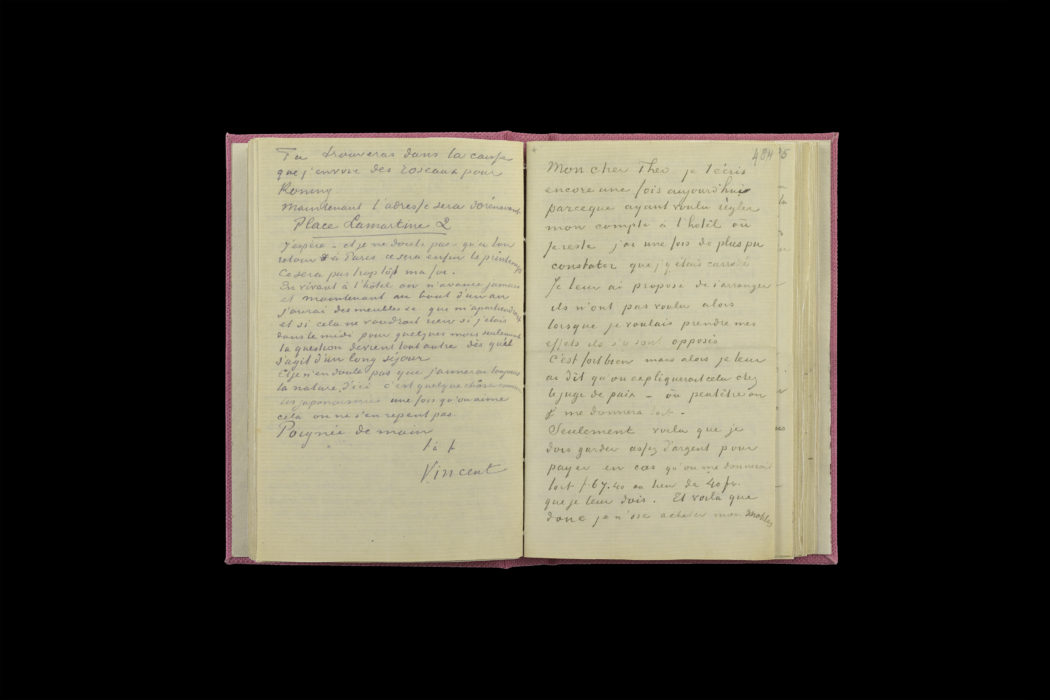 Tu trouveras dans la caisse
que j'envoie des roseaux pour
Koning
Maintenant l'adresse sera dorénavant
Place Lamartine 2
J'espère – et je ne doute pas – qu'à ton
retour à Paris ce sera enfin le printemps
Ce sera pas trop tôt ma foi.
En vivant à l'hôtel on n'avance jamais
et maintenant au bout d'un an
j'aurai des meubles &c. que m'apartiendront
et si cela ne vaudrait rien si j'etais
dans le midi pour quelques mois seulement
la question devient tout autre dès qu'il
s'agit d'un long séjour
Et je n'en doute pas que j'aimerai toujours
la nature d'ici c'est quelque chôse comme
les japonaiseries une fois qu'on aime
cela on ne s'en repent pas.
Poignée de main
t à t
Vincent
484 5
Mon cher Theo, je t'écris
encore une fois aujourd'hui
parceque ayant voulu régler
mon compte à l'hotêl où
je reste j'ai une fois de plus pu
constater que j'y étais carotté
Je leur ai proposé de s'arranger
ils n'ont pas voulu alors
lorsque je voulais prendre mes
effets ils s'y sont opposés
C'est fort bien mais alors je leur
ai dit qu'on expliquerait cela chez
le juge de paix – où peutêtre on
me donnera tort. –
Seulement voila que je
dois garder assez d'argent pour
payer en cas qu'on me donnerait
tort f. 67.40 au lieu de 40 fr.
que je leur dois. Et voilà que
donc je n'ose acheter mon